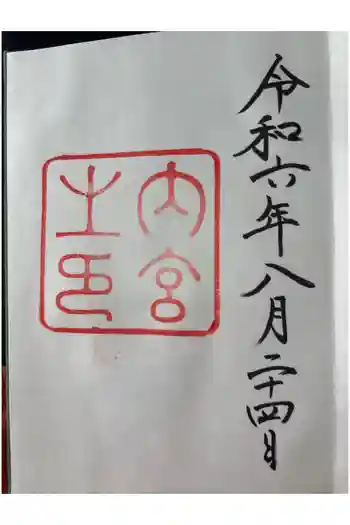 令和六年八月二十四日
内宮
之印